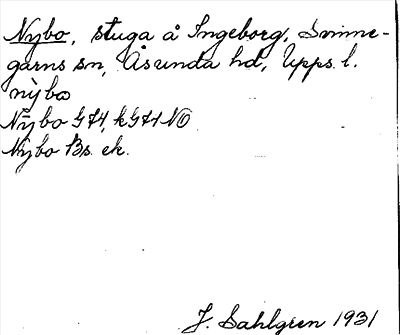 Nybo, stuga å Ingeborg, Simme-
garns sn, Åsunda hd, Upps. l.
nỳbo
Nybo G74, kG71 NO
Nybo Bs. ek.
J. Sahlgren 1931